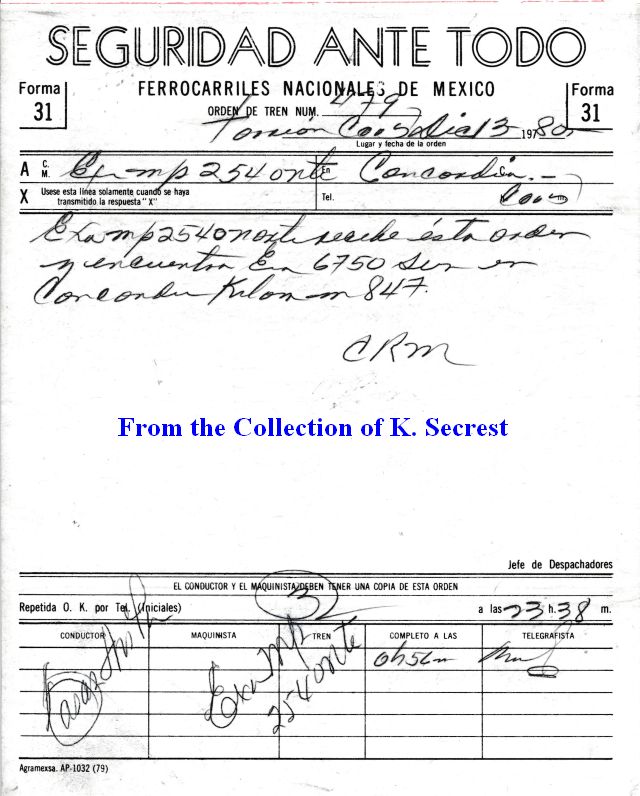 SEGURIDAD ANTE TODO
Forma 31
FERROCARRILES NACIONALES DE MEXICO
Forma 31
ORDEN DE TREN NUM. 479
Torreón 13 1980
Lugar y fecha de la orden
A C. M. mp 254 onte En Concordia.-
X Usese esta línea solamente cuando se haya transmitido la respuesta "X" Tel.
mp 254 onorte recibe ésta orden
y encuentra 6750 Sur en
Concordia 847.
CRM
From the Collection of K. Secrest
Jefe de Despachadores
EL CONDUCTOR Y EL MAQUINISTA DEBEN TENER UNA COPIA DE ESTA ORDEN
Repetida O. K. por Tel. (Iniciales) a las 23 h. 38 m.
CONDUCTOR MAQUINISTA TREN COMPLETO A LAS TELEGRAFISTA
mp
254 onte
Agramexsa. AP-1032 (79)